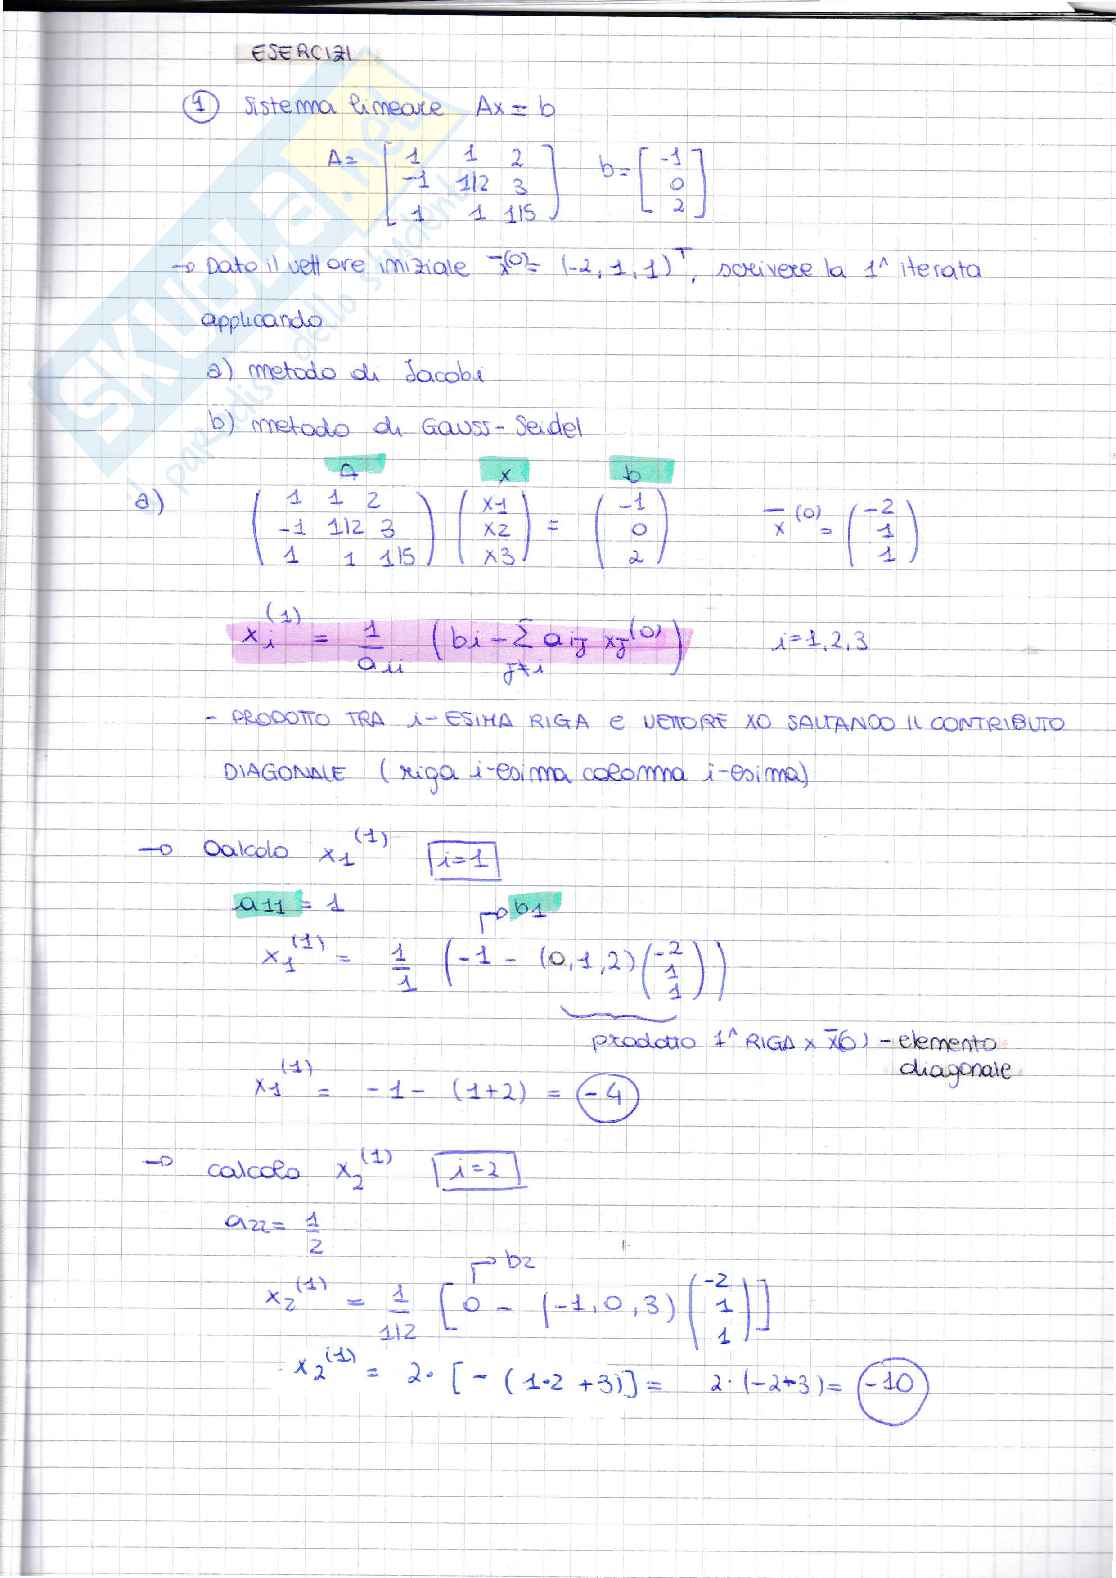 ESERCIZI
1 Sistema lineare Ax = b
A= [ 1 1 2 b= [ -1
-1 1/2 3 0
1 1 1/5 ] 2 ]
→ Dato il vettore iniziale x̄(0)= (-2, 1, 1)^T, scrivere la 1^ iterata
applicando
a) metodo di Jacobi
b) metodo di Gauss-Seidel
a x b
a) ( 1 1 2 ( x1 ( -1 ( -2
-1 1/2 3 x2 = 0 x̄(0) = 1
1 1 1/5 ) x3 ) 2 ) 1 )
xi(1) = 1/aii (bi - Σ j≠i aij xj(0)) i=1,2,3
- PRODOTTO TRA i-ESIMA RIGA E VETTORE X0 SALTANDO IL CONTRIBUTO
DIAGONALE (riga i-esima colonna i-esima)
→ Calcolo x1(1) i=1
a11 = 1 b1
x1(1) = 1/1 (-1 - (0,1,2) (-2 1 1))
prodotto 1^ RIGA x x̄0) - elemento
diagonale
x1(1) = -1 - (1+2) = -4
→ calcolo x2(1) i=2
a22 = 1/2
b2
x2(1) = 1/1/2 [0 - (-1,0,3) (-2 1 1)]
x2(1) = 2·[-(1·2+3)] = 2·(-2+3) = -10
SKUOLA.net